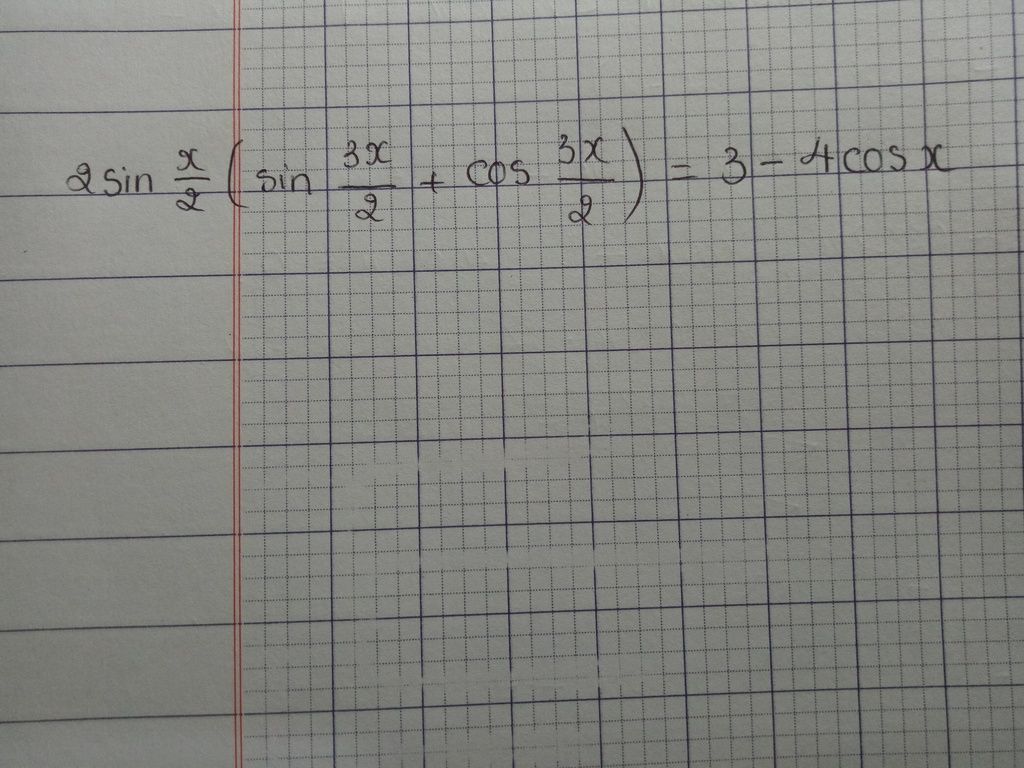 2 sin x/2 ( sin 3x/2 + cos 3x/2 ) = 3 - 4 cos x